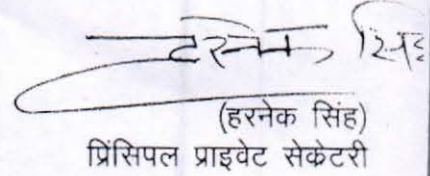 हरनेक सिंह
(हरनेक सिंह)
प्रिंसिपल प्राइवेट सेकेटरी